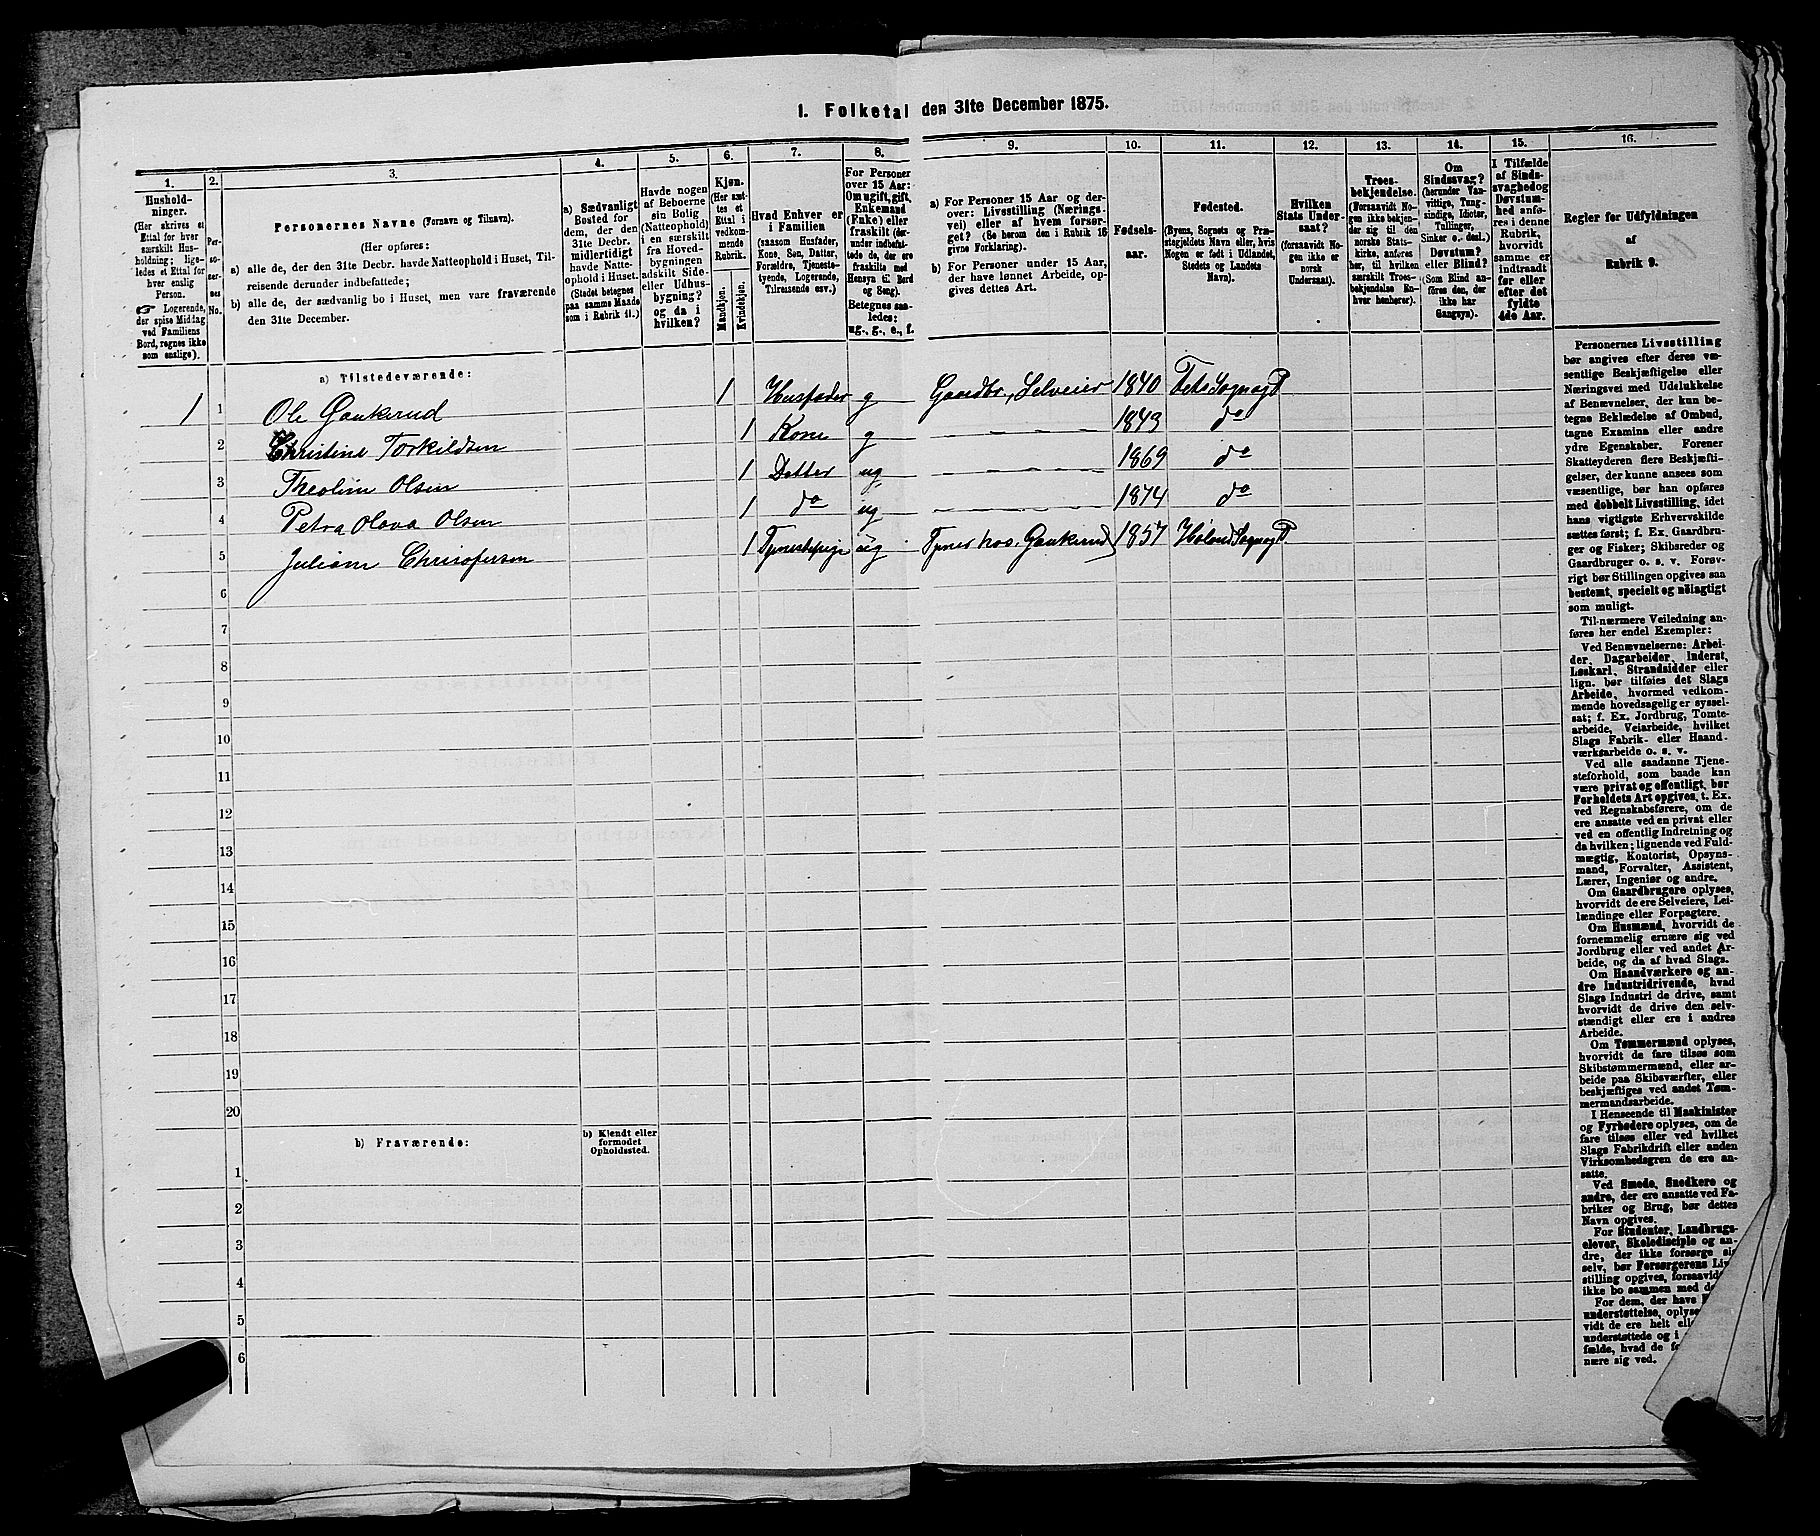 1. Folketal den 31te December 1875.
1.
Hushold-
ninger.
(Her skrives et
Ettal for hver
særskilt Hus-
holdning; lige-
ledes et Ettal for
hver enslig
Person.
☞ Logerende,
der spise Middag
ved Familiens
Bord, regnes ikke
som enslige).
2.
Per-
so-
ner-
nes
No.
3.
Personernes Navne (Fornavn og Tilnavn).
(Her opføres:
a) alle de, der den 31te Decbr. havde Natteophold i Huset, Til-
reisende derunder indbefattede;
b) alle de, der sædvanlig bo i Huset, men vare fraværende
den 31te December.
4.
a) Sædvanligt
Bosted for
dem, der den
31te Decbr.
midlertidigt
havde Natte-
ophold i Huset.
(Stedet betegnes
paa samme Maade
som i Rubrik 11.)
5.
Havde nogen
af Beboerne
sin Bolig
(Natteophold)
i en særskilt
fra Hoved-
bygningen
adskilt Side-
eller Udhus-
bygning?
og da i
hvilken?
6.
Kjøn.
(Her sæt-
tes et
Ettal i
vedkom-
mende
Rubrik.
Mandkjøn.
Kvindekjøn.
7.
Hvad Enhver er
i Familien
(saasom Husfader,
Kone, Søn, Datter,
Forældre, Tjeneste-
tyende, Logerende,
Tilreisende osv.)
8.
For Personer
over 15 Aar:
Om ugift, gift,
Enkemand
(Enke) eller
fraskilt (der-
under indbefat-
tede de, der ere
fraskilte med
Hensyn til Bord
og Seng).
Betegnes saa-
ledes:
ug., g., e., f.
9.
a) For Personer 15 Aar og der-
over: Livsstilling (Nærings-
vei) eller af hvem forsør-
get? (Se herom den i Rubrik 16
givne Forklaring).
b) For Personer under 15 Aar,
der have lønnet Arbeide, op-
gives dettes Art.
10.
Fødsels-
aar.
11.
Fødested.
(Byens, Sognets og Præ-
stegjeldets Navn eller, hvis
Nogen er født i Udlandet,
Stedets og Landets
Navn).
12.
Hvilken
Stats Under-
saat?
(forsaavidt No-
gen ikke er
norsk
Undersaat).
13.
Troes-
bekjendelse.
(Forsaavidt No-
gen ikke bekjen-
der sig til den
norske Stats-
kirke, anføres
her, til hvilken
særskilt Troes-
bekjendelse En-
hver henhører).
14.
Om
Sindssvag?
(herunder Van-
vittige, Tung-
sindige, Idioter,
Tullinger,
Sinker o. desl.)
Døvstum?
eller Blind?
(Som Blind an-
føres den, der
ikke har
Gangsyn).
15.
I Tilfælde
af Sinds-
svaghed og
Døvstum-
hed anfø-
res i denne
Rubrik,
hvorvidt
samme er
indtraadt
før eller
efter det
fyldte
4de Aar.
16.
Regler for Udfyldningen
af
Rubrik 9.
a) Tilstedeværende:
1 1 Ole Gaukerud 1 Husfader g Gaardbr, Selveier 1840 Fets Sogn og P
2 Christine Torkildsen 1 Kone g 1843 do
3 Theoline Olsen 1 Datter ug 1869 do
4 Petra Olava Olsen 1 do ug 1874 do
5 Juliane Chrisofersen 1 Tjenestepige ug Tjener hos Gaukerud 1857 Høland Sogn og P
6
7
8
9
10
11
12
13
14
15
16
17
18
19
20
b) Fraværende:
b) Kjendt eller
formodet
Opholdssted.
1
2
3
4
5
6
Personernes Livsstilling
bør angives efter deres væ-
sentlige Beskjæftigelse eller
Næringsvei med Udelukkelse
af Benævnelser, der kun be-
tegne Beklædelse af Ombud,
tagne Examina eller andre
ydre Egenskaber. Forener
Skatteyderen flere Beskjæfti-
gelser, der kunne ansees som
væsentlige, bør han opføres
med dobbelt Livsstilling, idet
hans vigtigste Erhvervskilde
sættes først; f. Ex. Gaardbru-
ger og Fisker; Skibsreder og
Gaardbruger o. s. v. Forøv-
rigt bør Stillingen opgives saa
bestemt, specielt og nøiagtigt
som muligt.
Til nærmere Veiledning an-
føres her endel Exempler:
Ved Benævnelserne: Arbei-
der, Dagarbeider, Inderst,
Løskarl, Strandsidder eller
lign. bør tilføies det Slags
Arbeide, hvormed vedkom-
mende hovedsagelig er syssel-
sat; f. Ex. Jordbrug, Tomte-
arbeide, Veiarbeide, hvilket
Slags Fabrik- eller Haand-
værksarbeide o. s. v.
Ved alle saadanne Tjene-
steforhold, som baade kan
være privat og offentligt, bør
Forholdets Art opgives, t. Ex.
ved Regnskabsførere, om de
ere ansatte ved en privat eller
ved en offentlig Indretning og
da hvilken; lignende ved Fuld-
mægtig, Kontorist, Opsyns-
mand, Forvalter, Assistent,
Lærer, Ingeniør og andre.
Om Gaardbrugere oplyses,
hvorvidt de ere Selveiere, Lei-
lændinge eller Forpagtere.
Om Husmænd, hvorvidt de
fornemmelig ernære sig ved
Jordbrug eller ved andet Ar-
beide, og da af hvad Slags.
Om Haandværkere og an-
dre Industridrivende, hvad
Slags Industri de drive, samt
hvorvidt de drive den selv-
stændigt eller ere i andres
Arbeide.
Om Tømmermænd oplyses,
hvorvidt de fare tilsøs som
Skibstømmermænd, eller ar-
beide paa Skibsværfter, eller
beskjæftiges ved andet Tøm-
mermandsarbeide.
I Henseende til Maskinister
og Fyrbødere oplyses, om de
fare tilsøs eller ved hvilket
Slags Fabrikdrift eller anden
Virksomhedsgren de ere an-
satte.
Ved Smede, Snedkere og
andre, der ere ansatte ved Fa-
briker og Brug, bør dettes
Navn opgives.
For Studenter, Landbrugs-
elever, Skoledisciple og an-
dre, der ikke forsørge sig
selv, bør Forsørgerens Liv
stilling opgives, forsaavidt
ikke bo sammen med
For dem, der have
understøttelse, oplys
vidt de ere helt ell
understøttede og i
fælde, hvad de
nære sig ved.